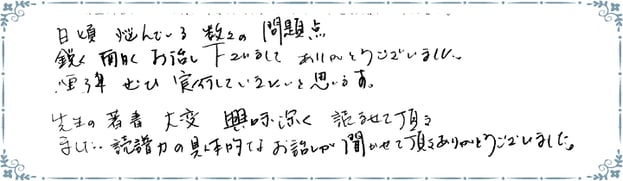 日頃 悩んでいる 数々の 問題点
鋭く 面白く お話し 下さいまして ありがとうございました。
ぜひ 実行していきたいと思います。
先生の 著書 大変 興味深く 読ませて頂き
ました。読譜力の具体的なお話しが聞かせて頂きありがとうございました。